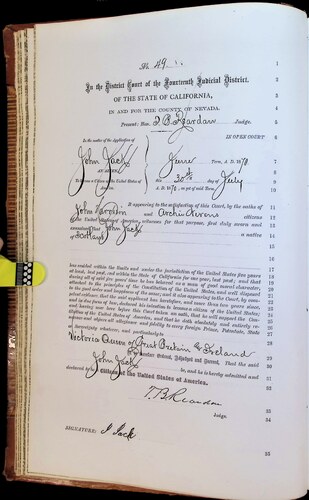 No. 49 1
In the District Court of the Fourteenth Judicial District. 2
OF THE STATE OF CALIFORNIA, 3
IN AND FOR THE COUNTY OF NEVADA. 4
Present: Hon. T B Reardan Judge. 5
In the matter of the Application IN OPEN COURT 6
John Jack June Term, A. D. 1870. 7
AN ALIEN, 8
To become a Citizen of the United States of America. 30th day of July 9
A. D. 1870, as yet of said Term. 10
It appearing to the satisfaction of this Court, by the oaths of 11
John and Archie Nevens citizens 12
of the United States of America, witnesses for that purpose, first duly sworn and 13
examined that John Jack a native 14
of Scotland 15
has resided within the limits and under the jurisdiction of the United States five years
at least, last past, and within the State of California for one year, last past; and that
during all of said five years' time he has behaved as a man of good moral character,
attached to the principles of the Constitution of the United States, and well disposed
to the good order and happiness of the same; and it also appearing to the Court, by
and having now here before this Court taken an oath, that he will support the Con-
stitution of the United States of America, and that he doth absolutely and entirely re-
nounce and abjure all allegiance and fidelity to every foreign Prince, Potentate, State
or Sovereignty whatever, and particularly to
Victoria Queen of Great Britain & Ireland
It is therefore Ordered, Adjudged and Decreed, That the said
John Jack be, and he is hereby admitted and
declared to be a Citizen of the United States of America.
T. B. Reardan
Judge. 33
SIGNATURE: J Jack 34
35